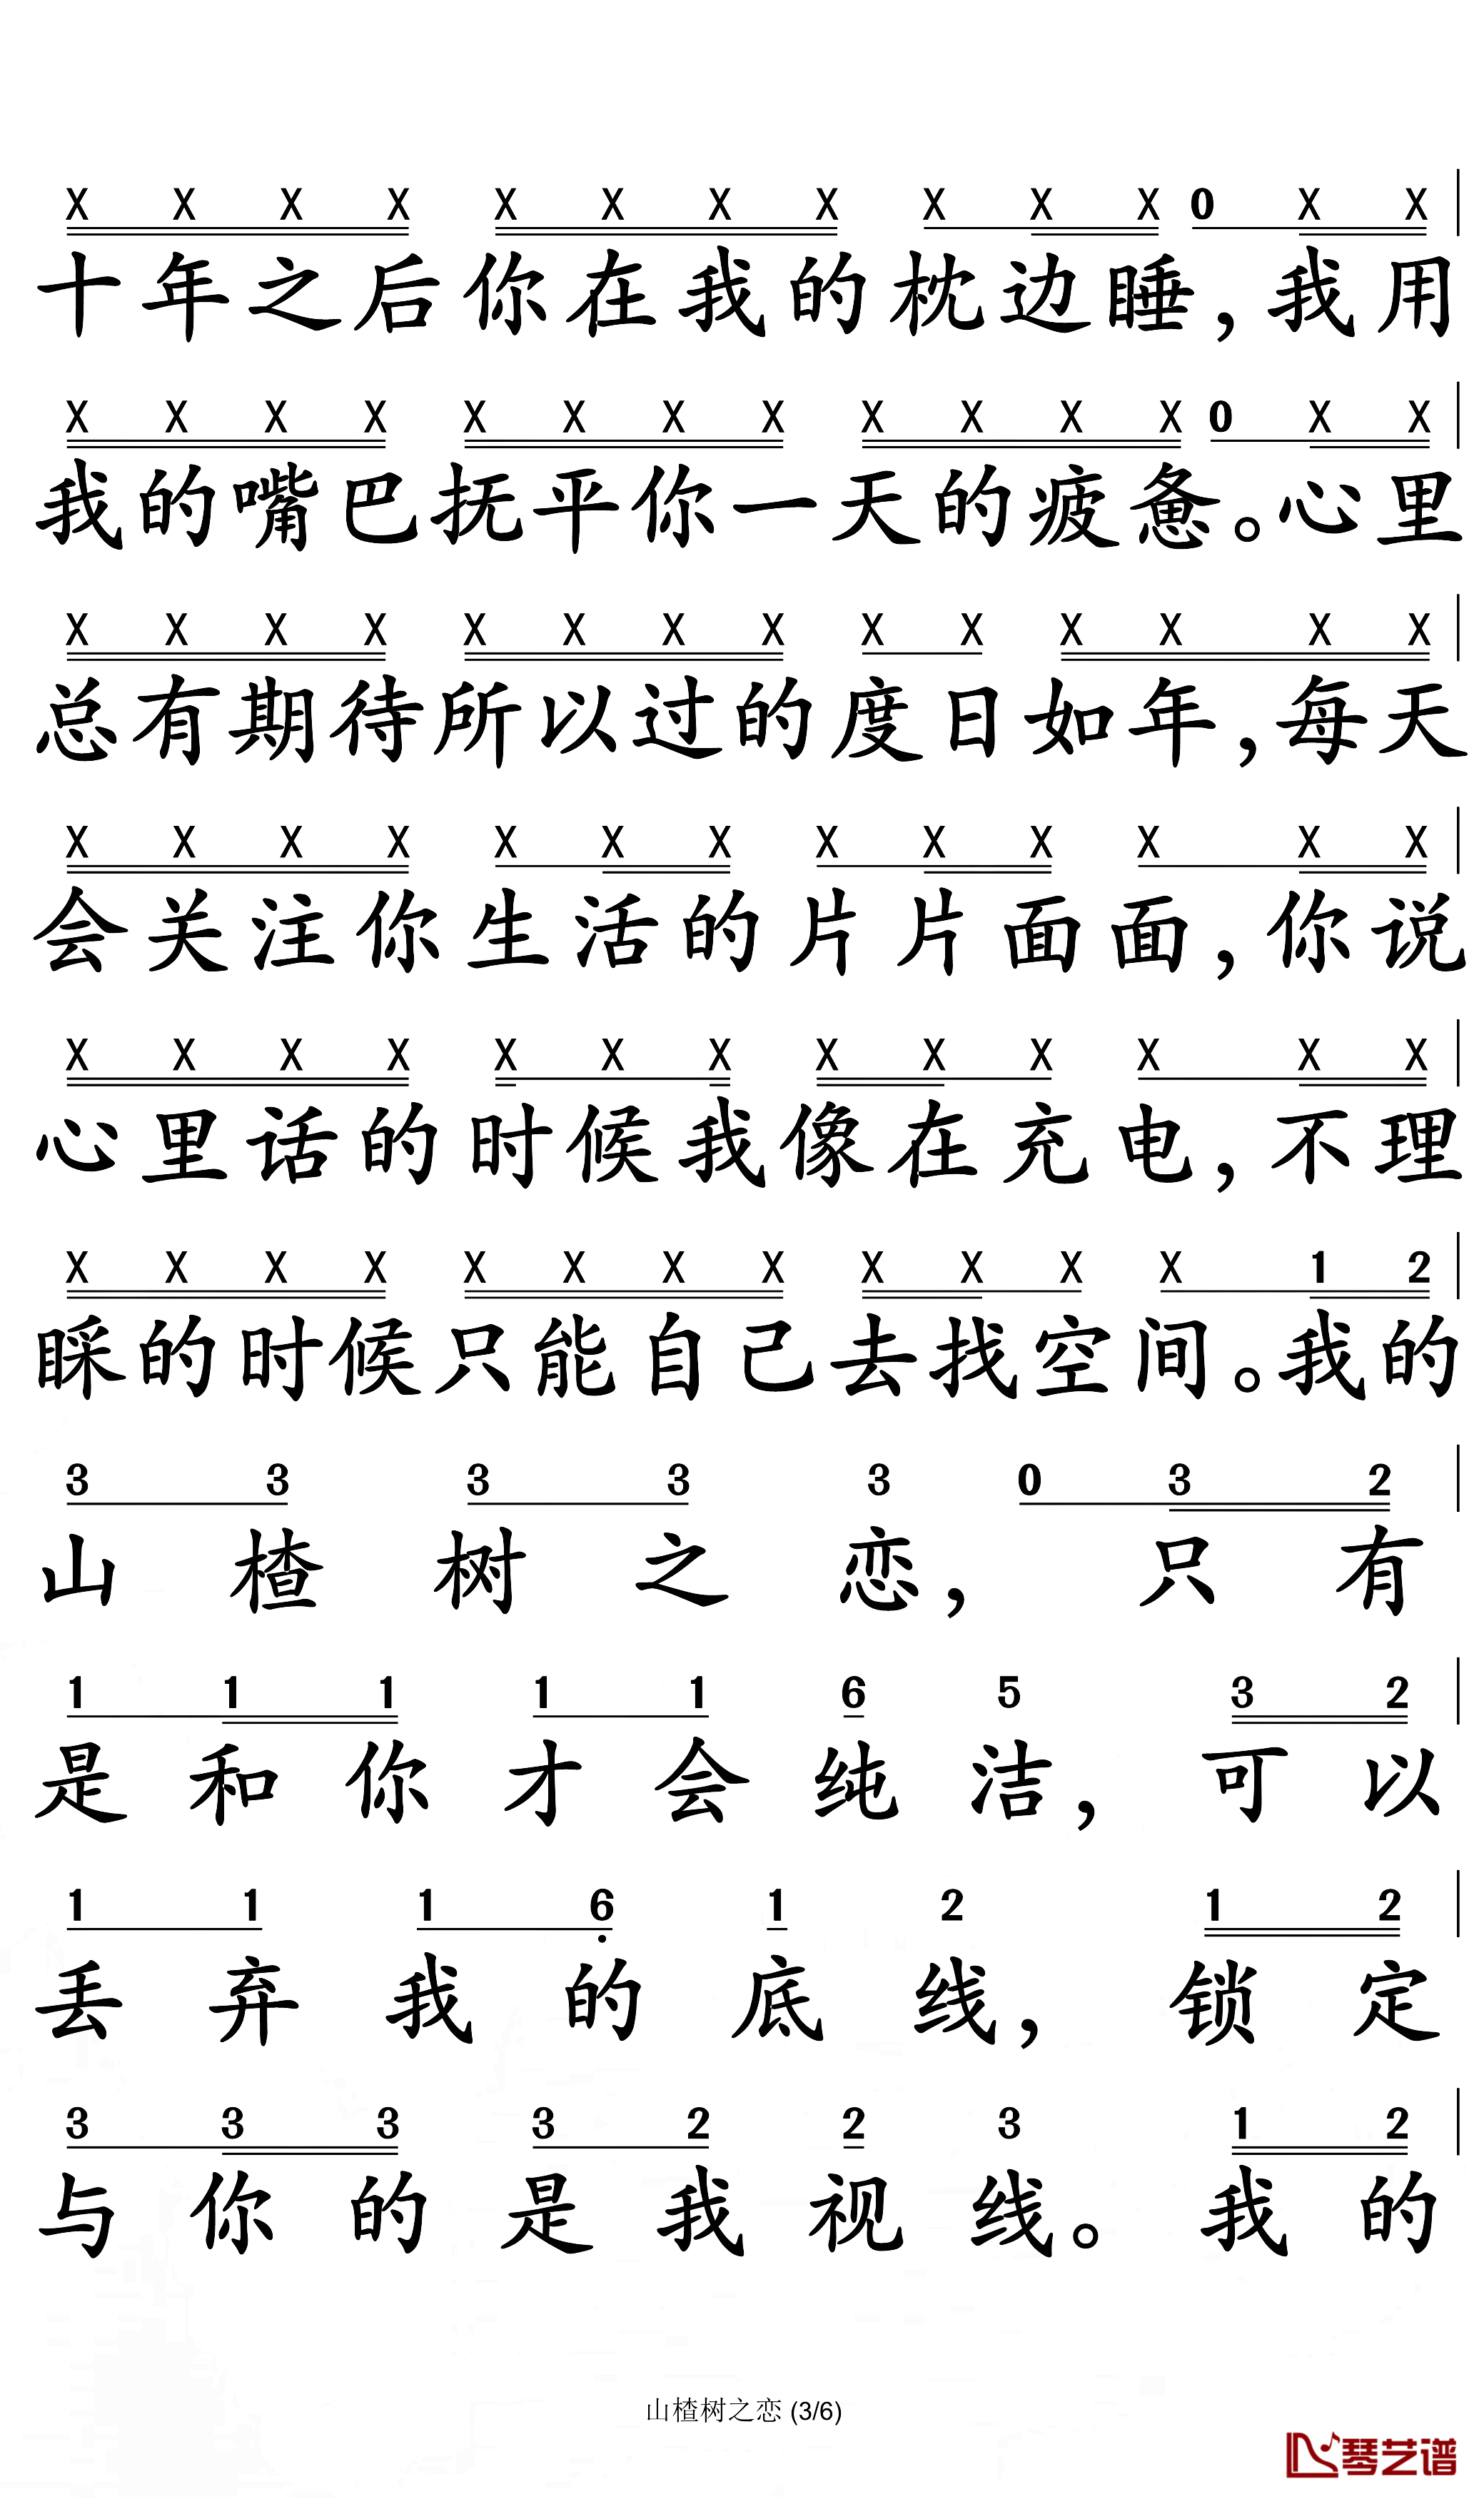 X X X X X X X X X X X 0 X X
十年之后你在我的枕边睡，我用
X X X X X X X X X X X X 0 X X
我的嘴巴抚平你一天的疲惫。心里
X X X X X X X X X X X X X X
总有期待所以过的度日如年，每天
X X X X X X X X X X X X X
会关注你生活的片片面面，你说
X X X X X X X X X X X X X
心里话的时候我像在充电，不理
X X X X X X X X X X X X 1 2
睬的时候只能自己去找空间。我的
3 3 3 3 3 0 3 2
山楂树之恋，只有
1 1 1 1 1 6 5 3 2
是和你才会纯洁，可以
1 1 1 6 1 2 1 2
丢弃我的底线，锁定
3 3 3 3 2 2 3 1 2
与你的是我视线。我的
山楂树之恋 (3/6)
琴艺谱